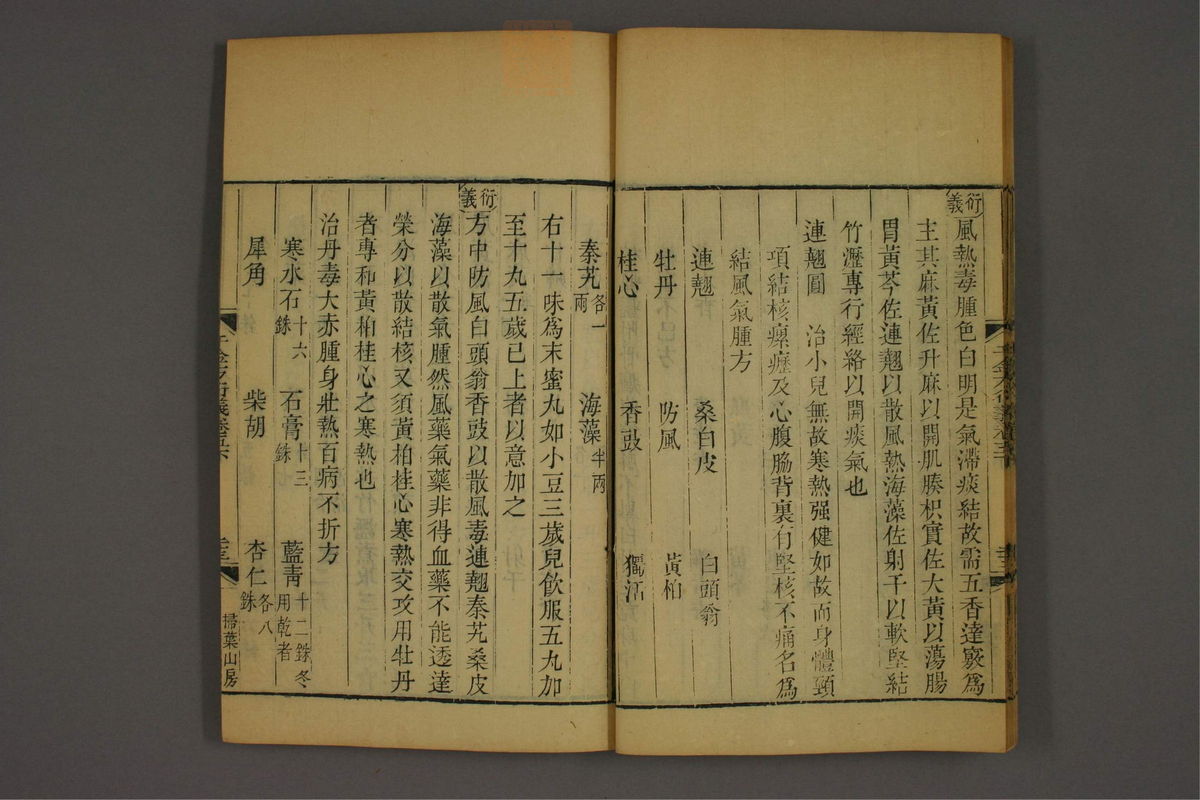 衍義
風熱毒腫色白明是氣滯痰結故需五香達竅爲
主其麻黃佐升麻以開肌腠枳實佐大黃以蕩腸
胃黃芩佐連翹以散風熱海藻佐射干以軟堅結
竹瀝專行經絡以開痰氣也
連翹圓 治小兒無故寒熱强健如故而身體頸
項結核瘰癧及心腹脇背裏有堅核不痛名爲
結風氣腫方
連翹 桑白皮 白頭翁
牡丹 防風 黃柏
桂心 香豉 獨活
秦艽各一兩 海藻半兩
右十一味爲末蜜丸如小豆三歲兒飲服五丸加
至十九五歲已上者以意加之
衍義
方中防風白頭翁香豉以散風毒連翹秦艽桑皮
海藻以散氣腫然風藥氣藥非得血藥不能透達
榮分以散結核又須黃柏桂心寒熱交攻用牡丹
者專和黃柏桂心之寒熱也
治丹毒大赤腫身壯熱百病不折方
寒水石十六銖 石膏十三銖 藍青十二銖冬用乾者
犀角 柴胡 杏仁各八銖
掃葉山房